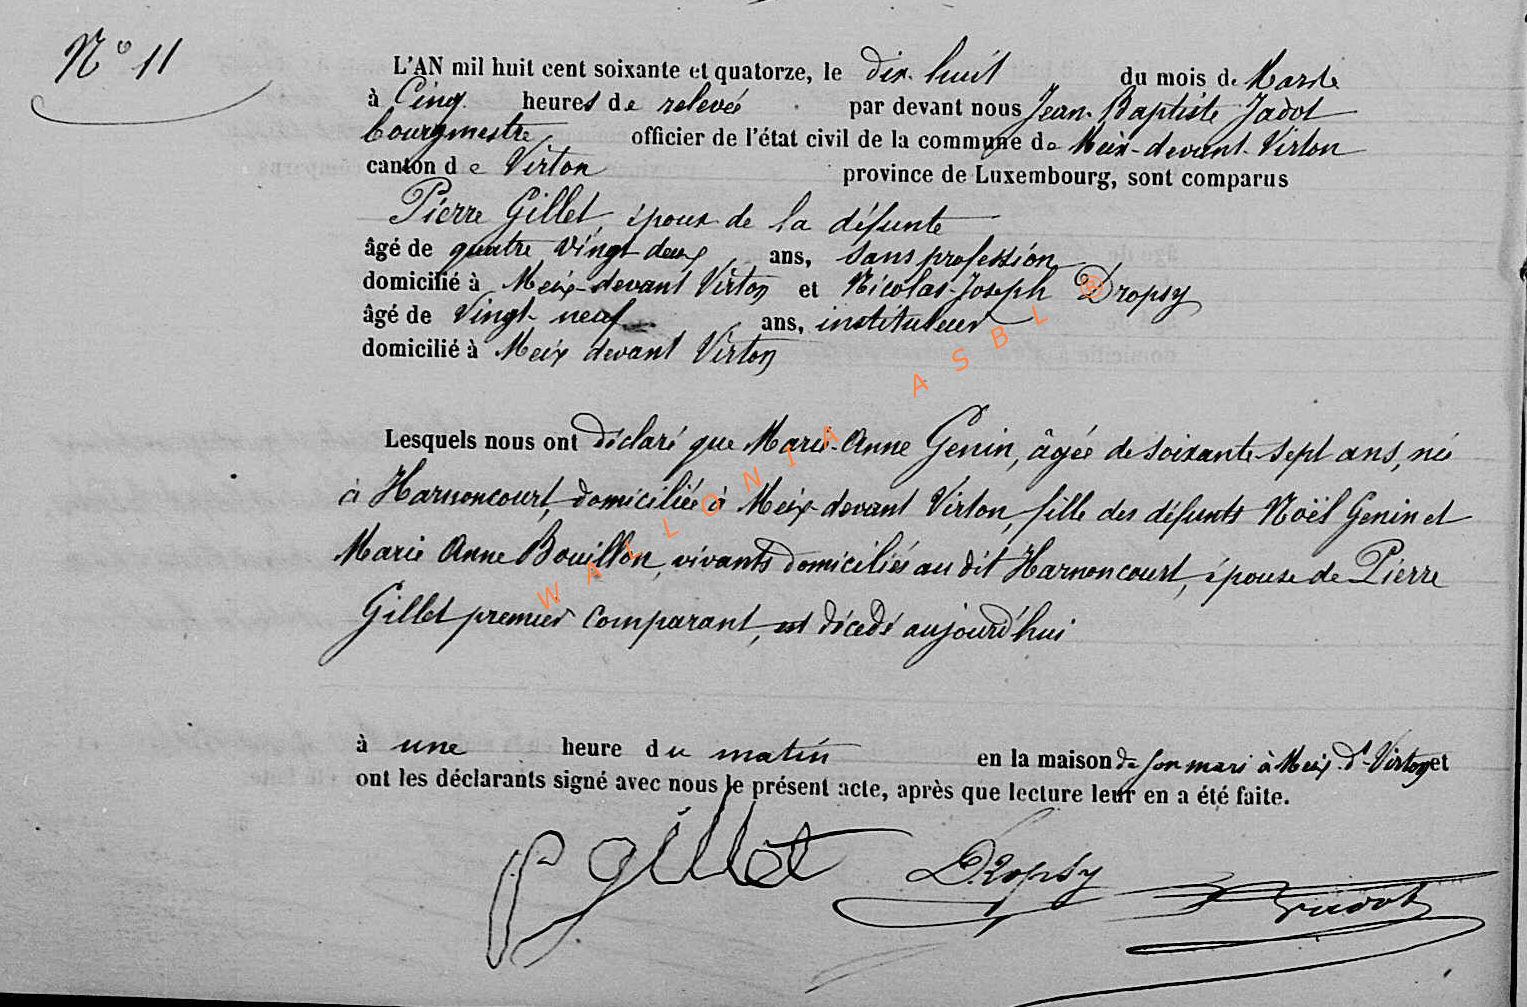 N° 11
L'AN mil huit cent soixante et quatorze, le dix huit du mois de Mars
à Cinq heures de relevée par devant nous Jean-Baptiste Jadot
bourgmestre officier de l'état civil de la commune de Meix-devant-Virton
canton de Virton province de Luxembourg, sont comparus
Pierre Gillet, époux de la défunte
âgé de quatre vingt deux ans, sans profession
domicilié à Meix-devant Virton et Nicolas-Joseph Dropsy
âgé de Vingt-neuf ans, instituteur
domicilié à Meix devant Virton
Lesquels nous ont déclaré que Marie-Anne Genin, âgée de soixante-sept ans, née
à Harnoncourt, domiciliée à Meix-devant Virton, fille des défunts Noël Genin et
Marie Anne Bouillon, vivants domiciliés au dit Harnoncourt, épouse de Pierre
Gillet premier comparant, est décédé aujourd'hui
à une heure du matin en la maison de son mari à Meix-dt-Virton et
ont les déclarants signé avec nous le présent acte, après que lecture leur en a été faite.
P gillet Dropsy Jadot
WALLONIA ASBL ®